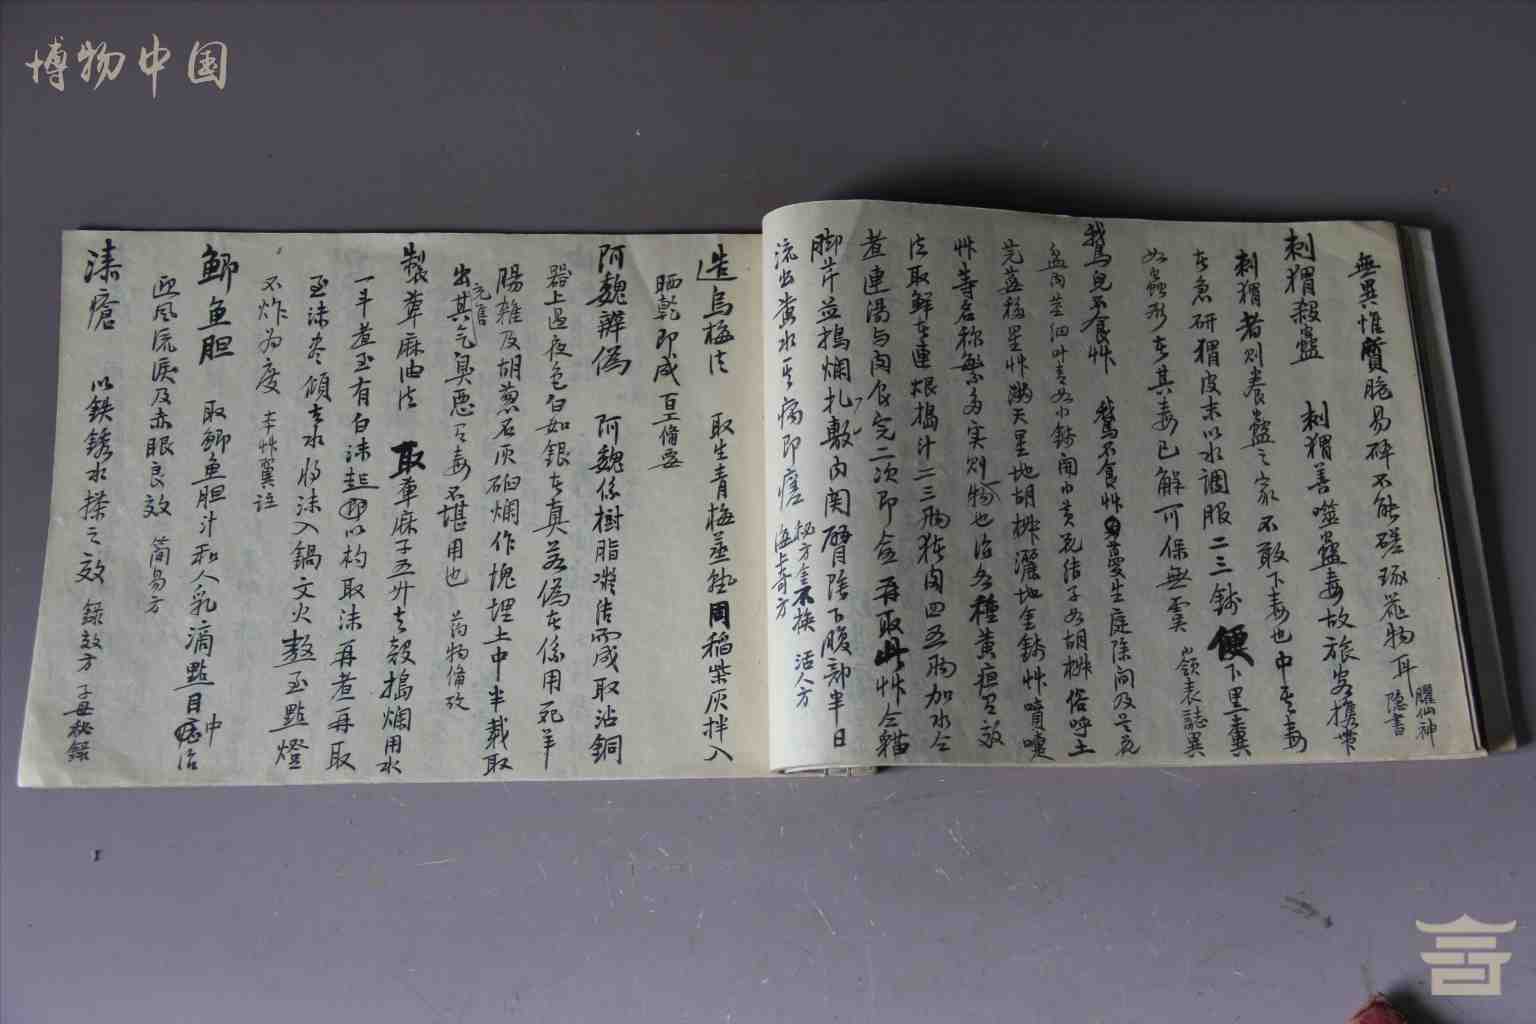 博物中国
無異惟質脆易碎不能磋琢花物耳 臞仙神隐書
刺猬殺蠱 刺猬善噬蠱毒故旅客携带
刺猬者則養蠱之家不敢下毒也中其毒
者急研猬皮末以水調服二三錢便下里糞
如蟲形者其毒已解可保無虞 嶺表誌異
鵝兒不食艸 鵝不食艸蔓生庭除间及花
盆内莖细叶青如小錢開巾黄花结子如胡椒俗呼土
芫荽移星艸满天星地胡椒灑地金錢艸噴嚏
艸等名称繁多实则一物也治各種黄疸甚效
法取鮮者連根搗汁二三两猪肉四五两加水仝
煮連湯与肉食完二次即愈再取此艸仝貓
脚芹並搗爛扎敷内関臂陰下腹部半日
流出黄水其病即瘥 秘方金不换 活人方 海上奇方
造烏梅法 取生青梅蒸熟用稻柴灰拌入
晒乾即成 百工備要
阿魏辨偽 阿魏係樹脂凝结而成取沾銅
器上過夜色白如銀者真若偽者係用死羊
腸雜及胡葱石灰硇爛作塊埋土中半載取
出其气臭惡有毒不堪用也 药物備攷
製萆麻油法 取萆麻子五升去殼搗爛用水
一斗煮至有白沫起即以杓取沫再煮再取
至沫尽傾去水将沫入鍋文火熬至點燈
不炸为度 本艸翼註
鯽鱼胆 取鯽鱼胆汁和人乳滴點目中治
迎風流淚及赤眼良效 简易方
漆瘡 以鉄銹水搽之效 録效方 子母秘録